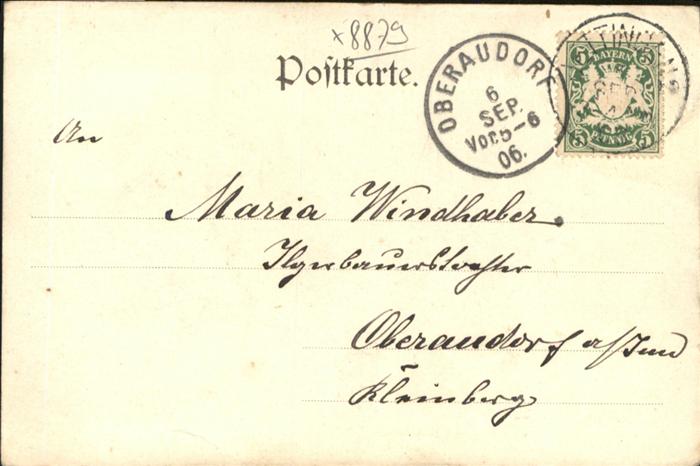 x8879
Postkarte.
OBERAUDORF
6
SEP.
Vor. 5-6
06.
BAYERN
5 5
5 PFENNIG 5
SEP
An
Maria Windhaber
Ilgerbauerstochter
Oberaudorf a/Inn
Kleinberg